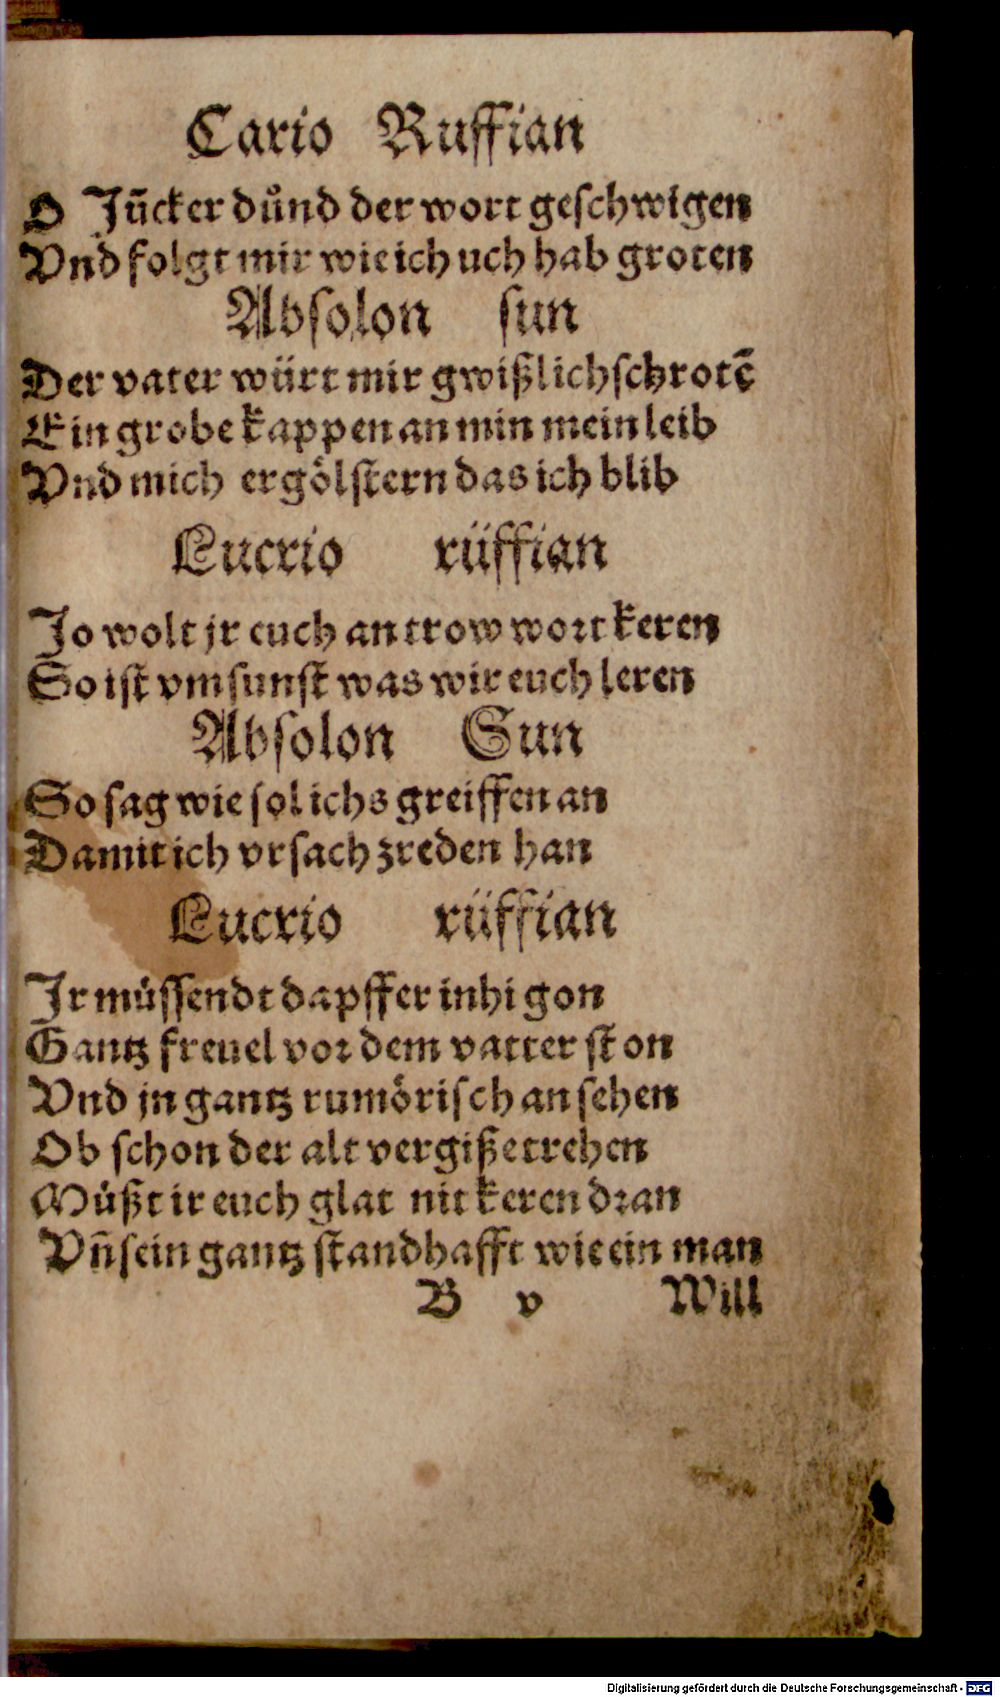 Cario Ruffian
O Jūcker důnd der wort geschwigen
Vnd folgt mir wie ich uch hab groten
Absolon sun
Der vater würt mir gwißlich schrotē
Ein grobe kappen an min mein leib
Vnd mich ergölstern das ich blib
Lucrio rüffian
Jo wolt jr euch an trow wort keren
So ist vmsunst was wir euch leren
Absolon Sun
So sag wie sol ichs greiffen an
Damit ich vrsach zreden han
Lucrio rüffian
Jr müssendt dapffer inhi gon
Gantz freuel vor dem vatter ston
Vnd jn gantz rumörisch an sehen
Ob schon der alt vergißetrehen
Müßt ir euch glat nit keren dran
Vñ sein gantz standhafft wie ein man
B v Will
Digitalisierung gefördert durch die Deutsche Forschungsgemeinschaft - DFG